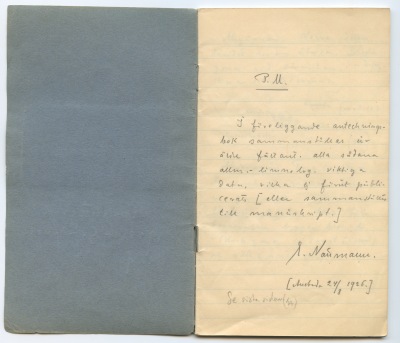 P.M.
I föreliggande antecknings-
bok sammanställer
alla sådana
allm.- limnolog. viktiga
Data, vilka ej förut publi-
cerats [eller sammanställts
till manuskript.]
E. Naumann.
[Aneboda 24/8 1926.]
Se sista sidan